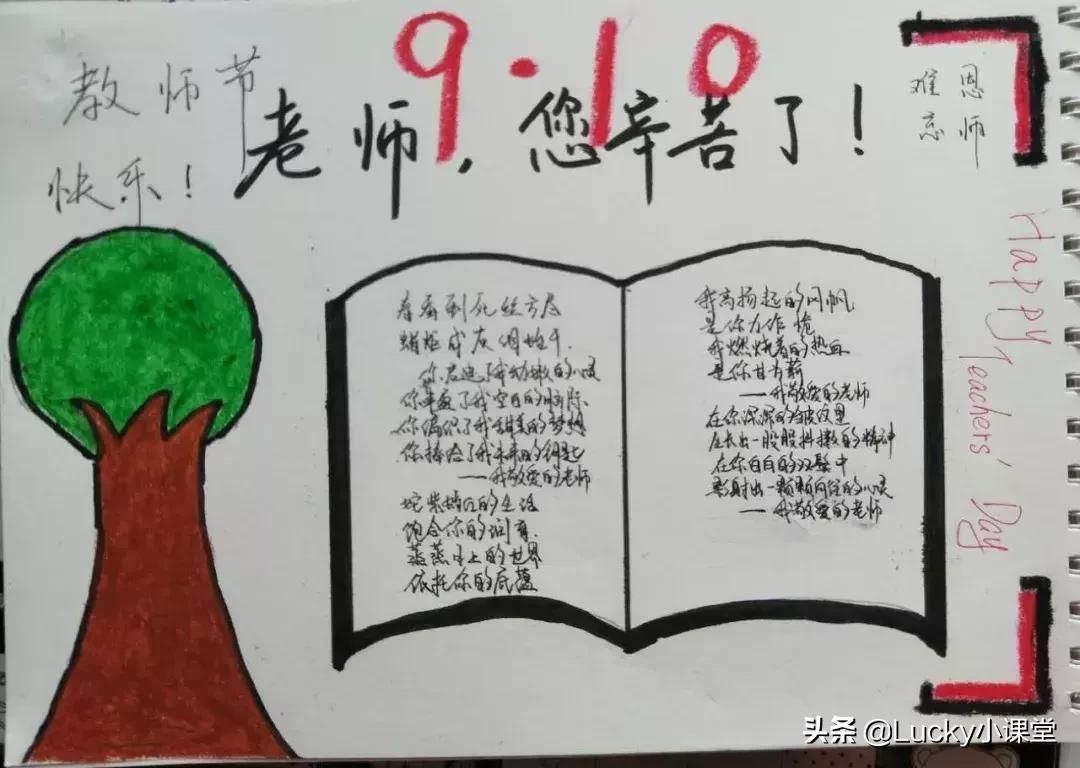 9·10
教师节
快乐！
老师，您辛苦了！
恩师
难忘
春蚕到死丝方尽
蜡炬成灰泪始干.
你启迪了我幼嫩的心灵
你丰盈了我空白的脑际.
你编织了我甜美的梦想
你捧给了我未来的钥匙
——我敬爱的老师
姹紫嫣红的生活
饱含你的润育.
蒸蒸日上的世界
依托你的底蕴
我高扬起的风帆
是你力作桅
我燃烧着的热血
是你甘为薪
——我敬爱的老师
在你深深的皱纹里
生长出一股股抖擞的精神
在你白白的双鬓中
影射出一颗颗向往的心灵
——我敬爱的老师
Happy Teachers' Day
头条 @Lucky小课堂